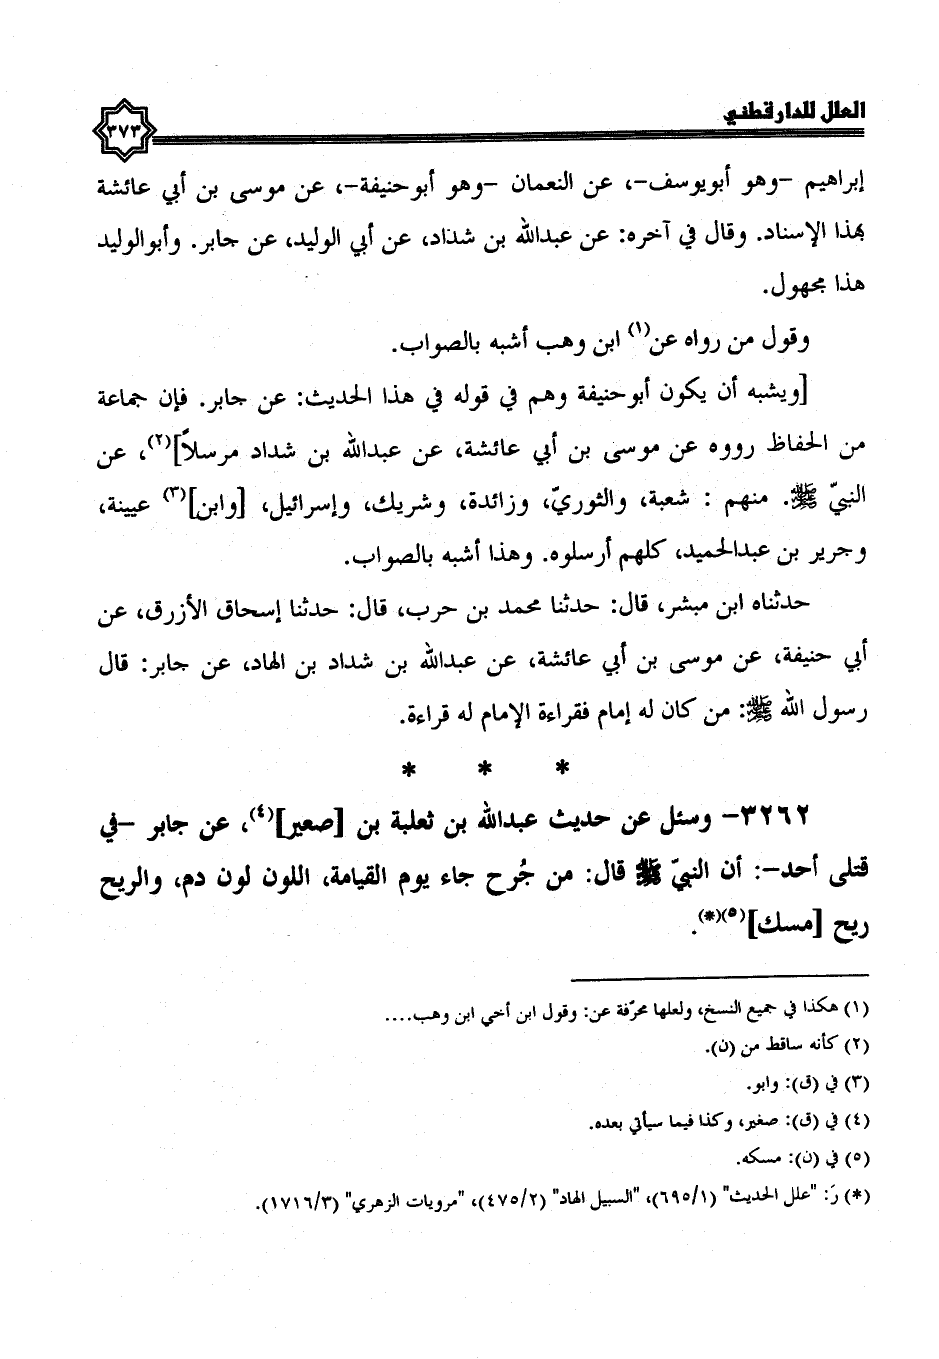 العلل للدارقطني
٣٧٣
إبراهيم -وهو أبويوسف-، عن النعمان -وهو أبوحنيفة-، عن موسى بن أبي عائشة
بهذا الإسناد. وقال في آخره: عن عبدالله بن شداد، عن أبي الوليد، عن جابر. وأبوالوليد
هذا مجهول.
وقول من رواه عن(١) ابن وهب أشبه بالصواب.
[ويشبه أن يكون أبوحنيفة وهم في قوله في هذا الحديث: عن جابر. فإن جماعة
من الحفاظ رووه عن موسى بن أبي عائشة، عن عبدالله بن شداد مرسلاً](٢)، عن
النبيّ ﷺ. منهم : شعبة، والثوريّ، وزائدة، وشريك، وإسرائيل، [وابن](٣) عيينة،
وجرير بن عبدالحميد، كلهم أرسلوه. وهذا أشبه بالصواب.
حدثناه ابن مبشر، قال: حدثنا محمد بن حرب، قال: حدثنا إسحاق الأزرق، عن
أبي حنيفة، عن موسى بن أبي عائشة، عن عبدالله بن شداد بن الهاد، عن جابر: قال
رسول الله ﷺ: من كان له إمام فقراءة الإمام له قراءة.
* * *
٣٢٦٢- وسئل عن حديث عبدالله بن ثعلبة بن [صعير](٤)، عن جابر -في
قتلى أحد-: أن النبيّ ﷺ قال: من جُرح جاء يوم القيامة، اللون لون دم، والريح
ريح [مسك](٥)(*).
(١) هكذا في جميع النسخ، ولعلها محرّفة عن: وقول ابن أخي ابن وهب....
(٢) كأنه ساقط من (ن).
(٣) في (ق): وابو.
(٤) في (ق): صغير، وكذا فيما سيأتي بعده.
(٥) في (ن): مسكه.
(*) رَ: "علل الحديث" (٦٩٥/١)، "السبيل الهاد" (٤٧٥/٢)، "مرويات الزهري" (١٧١٦/٣).